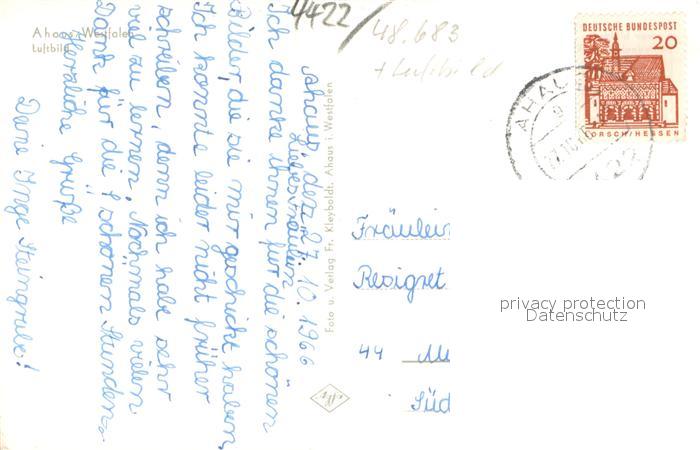 Ahaus i. Westfalen
Luftbild
4422/
48.683
+ Luftbild
DEUTSCHE BUNDESPOST
20
LORSCH/HESSEN
AHAUS
Ahaus, den 27.10.1966
Liebes Fräulein
Ich danke ihnen für die schönen
Bilder, die sie mir geschickt haben,
Ich konnte leider nicht früher
schreiben, denn ich habe sehr
viel zu lernen. Nochmals vielen
Dank für die schönen Stunden.
Herzliche Grüße
Deine Inge Steingrube!
Foto u. Verlag Fr. Kleyboldt, Ahaus i. Westfalen
Fräulein
Resi
44 M
Süd
privacy protection
Datenschutz